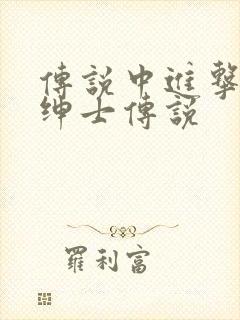 傳說中進擊
紳士傳說
羅利富